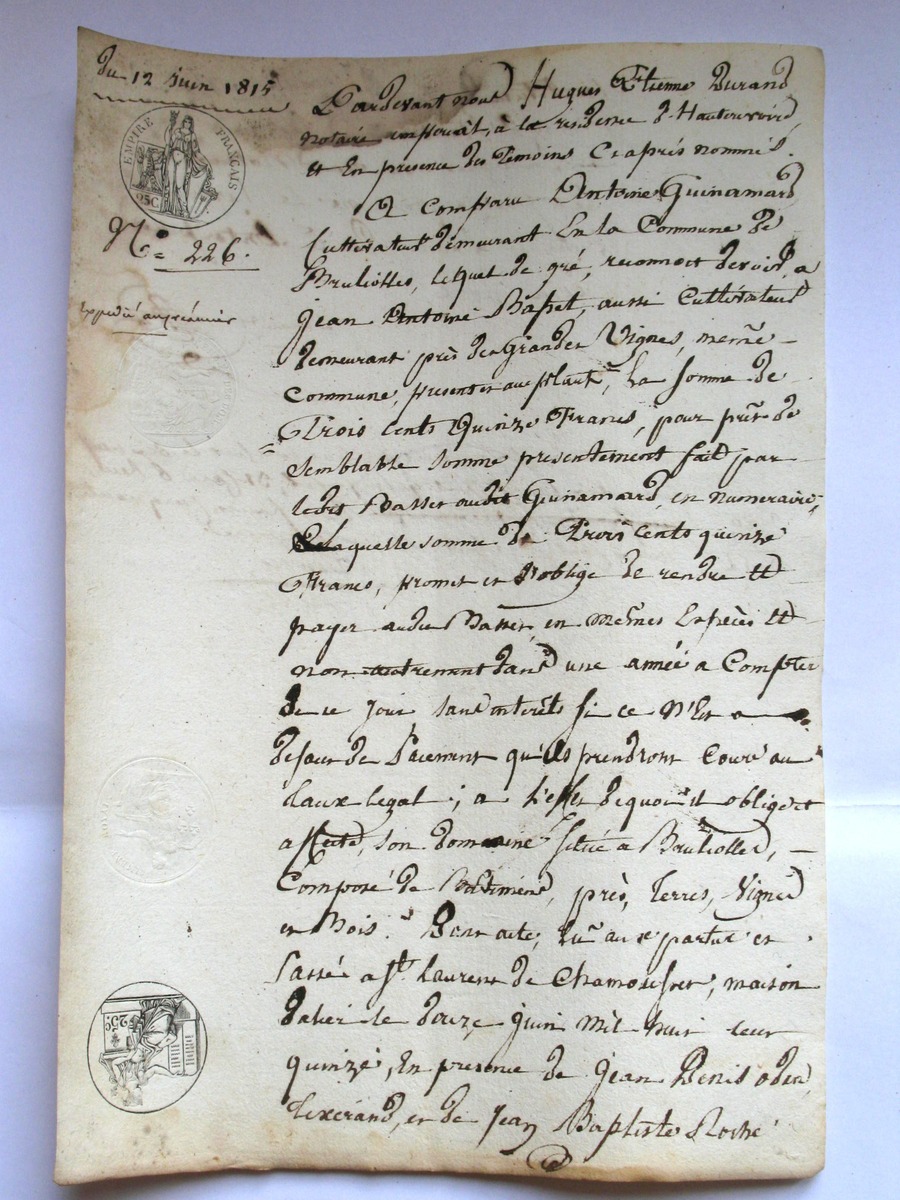 du 12 juin 1815
EMPIRE FRANÇAIS
25C
N.° 226.
Expedié au créancier
25C
Pardevant nous Hugues Etienne Durand
notaire imperial, à la residence d'Hauterivoire,
et En presence des Temoins Ci après nommés.
A comparu Antoine Guinamard
Cultivateur demeurant En la Commune de
Brulioles, lequel de gré, reconnoit devoir, a
jean Antoine Basset, aussi Cultivateur
demeurant près des Grandes Vignes, même
Commune, present et acceptant, La somme de
Trois cents Quinze Francs, pour prêt de
semblable somme presentement fait par
ledit Basset audit Guinamard, en numeraire,
Laquelle somme de Trois cents quinze
Francs, promet et s'oblige de rendre et
payer audit Basset, en mêmes Espèces et
non autrement dans une année a Compter
de ce jour sans interêts si ce N'Est a
defaut de Paiement qu'ils prendront Cours au
taux legal; a L'effet de quoi il oblige et
affecte, son domaine situé a Brulioles,
Composé de Batimens, près, Terres, Vignes
et Bois. Dont acte, Lu aux parties et
Passé a St. Laurent de Chamousset, maison
le douze juin mil huit cent
quinze, En presence de jean Denis
Tixerand, et de Jean Baptiste